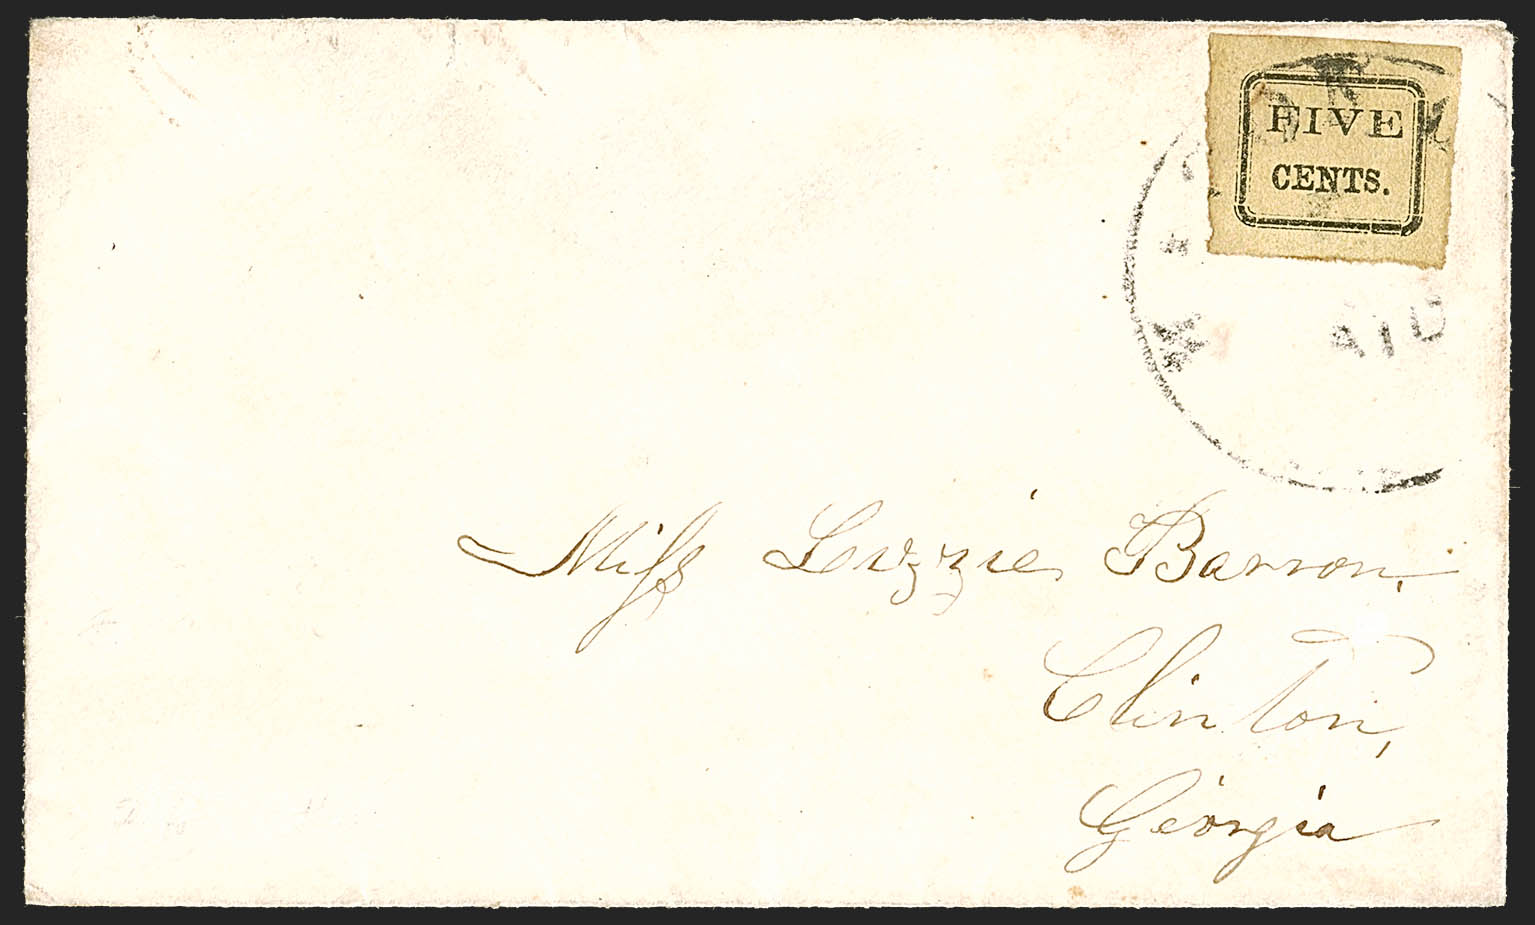 FIVE
CENTS.
Miſs Lizzie Barron,
Clinton,
Georgia